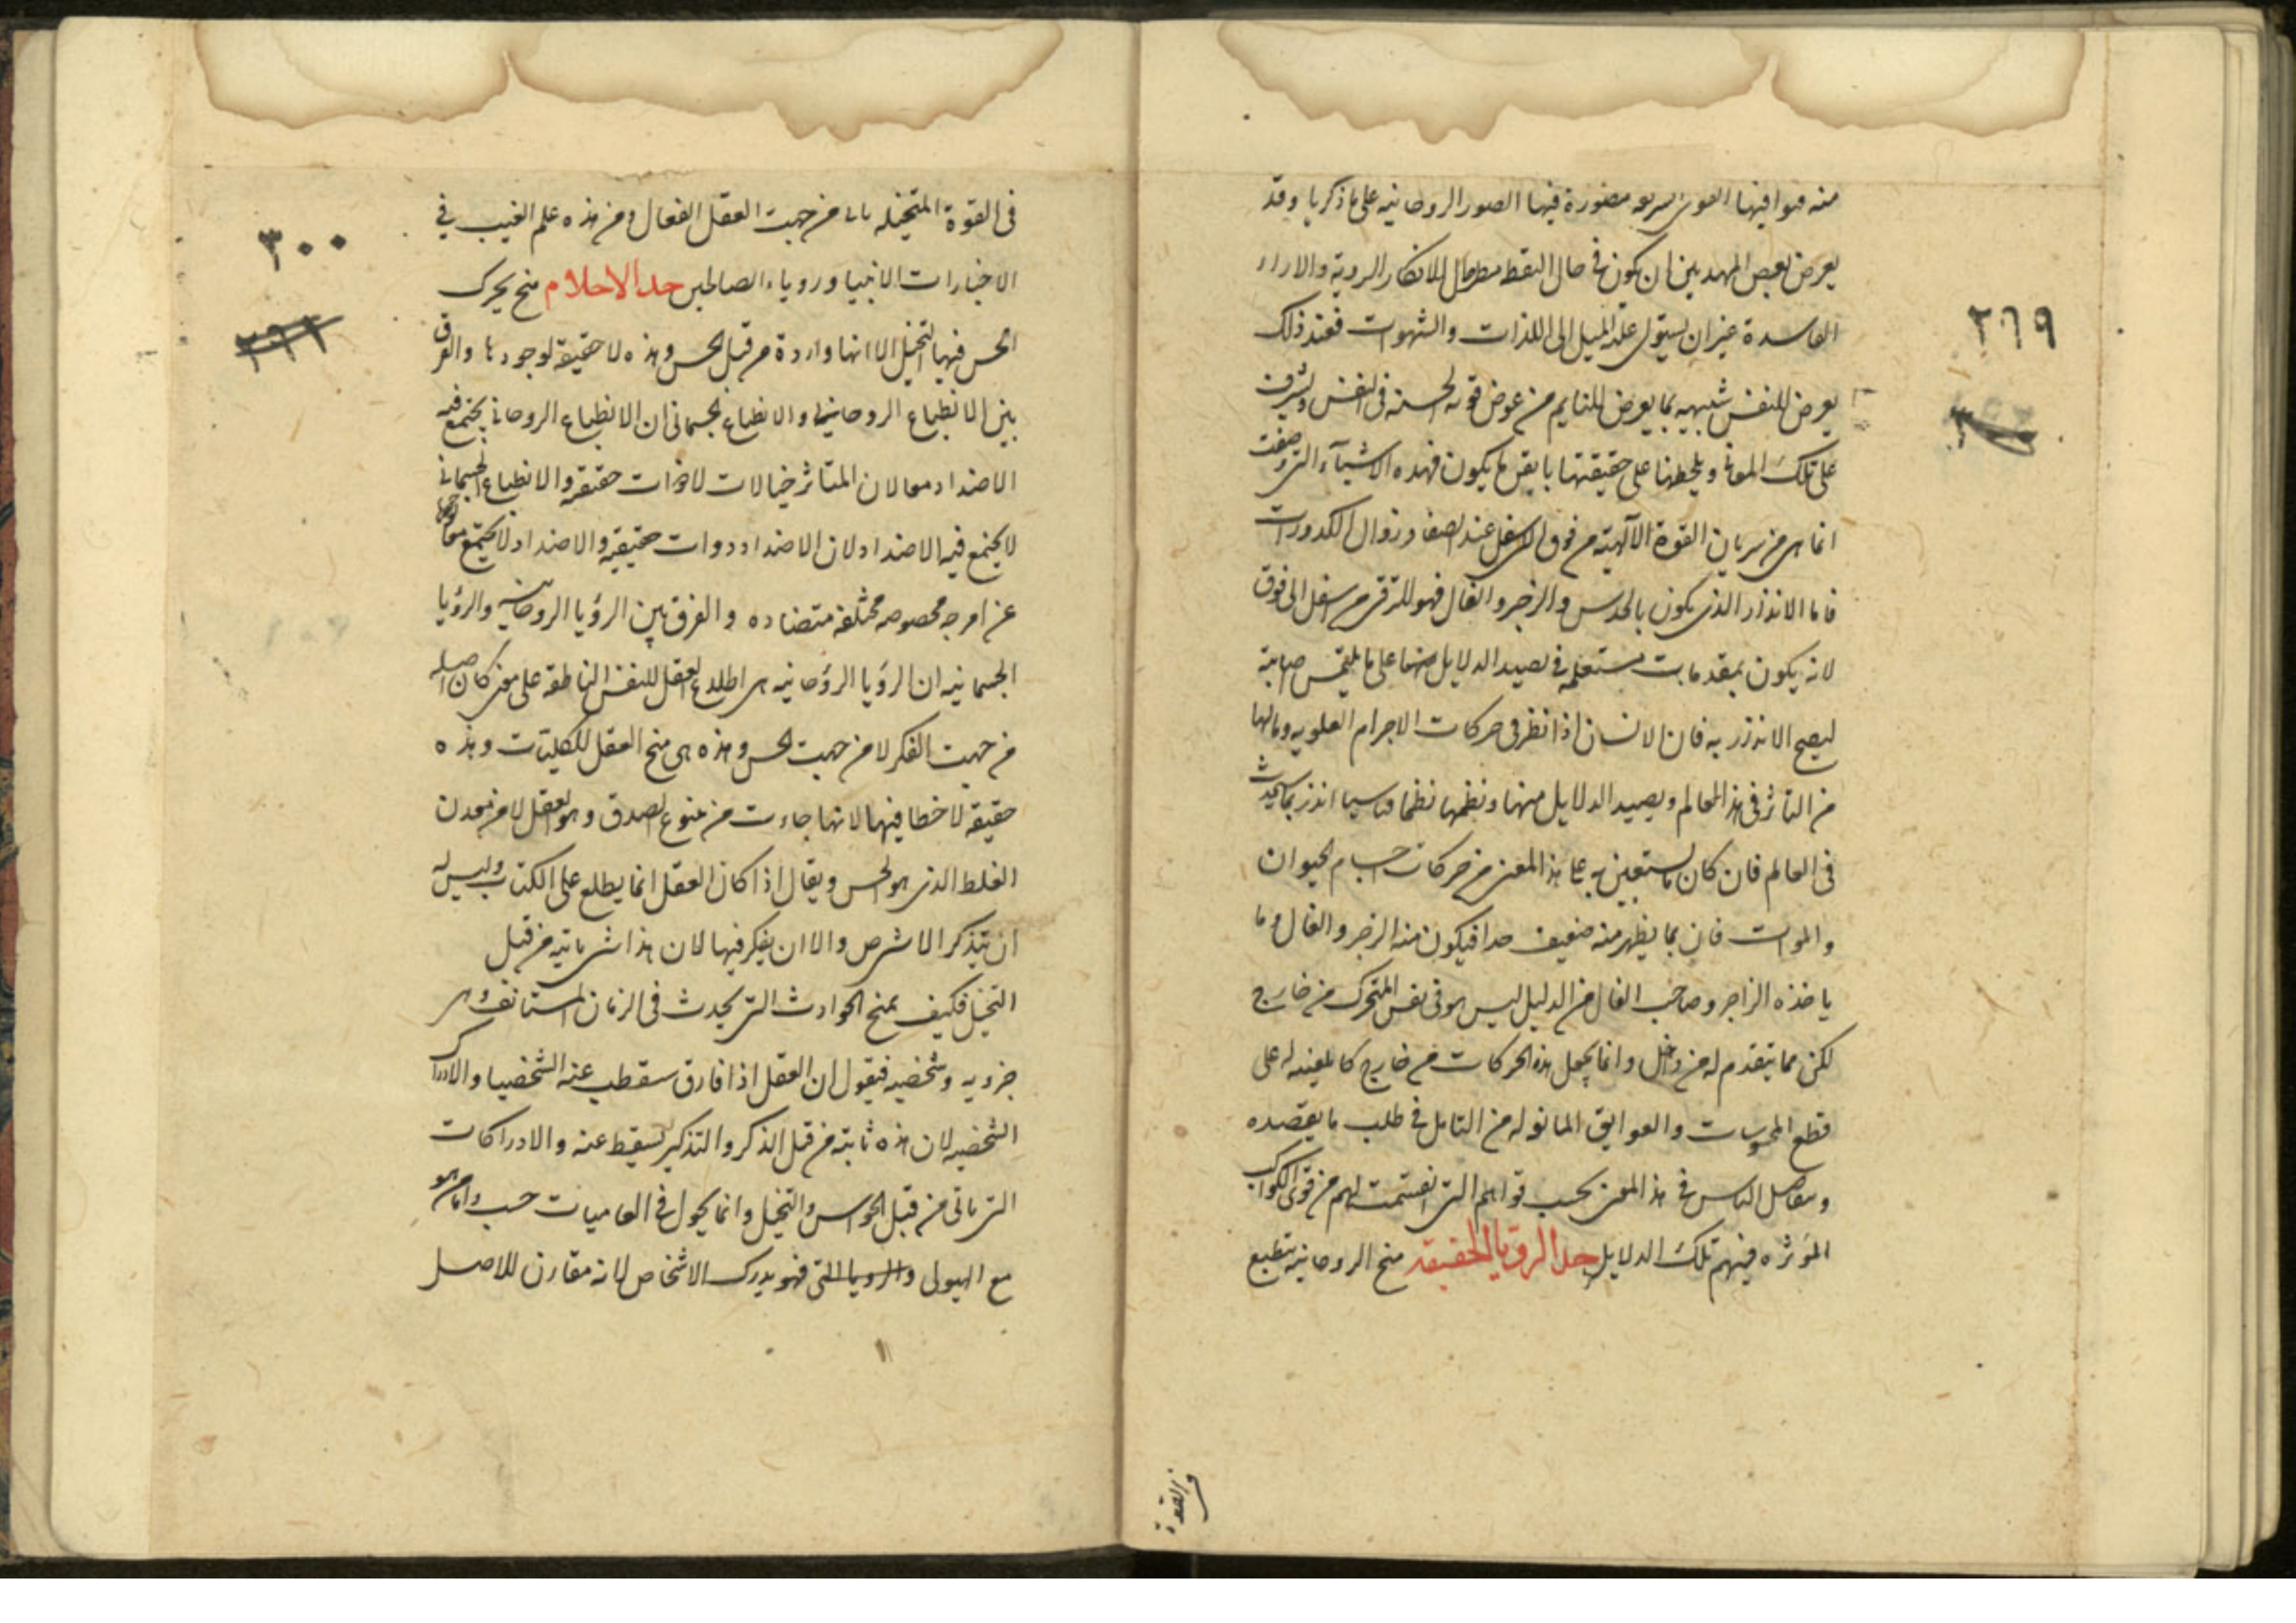 منه هوا فيها القوى سريعه مصورة فيها الصور الروحانيه على ما ذكرنا وقد
يعرض لبعض المهديين ان يكون في حال اليقظه للافكار الرديه والاراء
الفاسدة غير ان يستولى عليه الميل الى اللذات والشهوات فعند ذلك
يعرض للنفس شبيهه بما يعرض للنايم من عوض قوته الحسنه في النفس وتشرف
على تلك المعاني ويلحظها على حقيقتها يكون فهذه الاشياء التي وصفت
انما هى من سريان القوة الآلهية من فوق الى اسفل عند الصفا وزوال الكدورات
فاما الانذار الذى يكون بالحدس والزجر والفال فهو للترقى من اسفل الى فوق
لانه يكون بمقدمات مستعمله في تصيد الدلايل منها على ما يلتمس
ليصح الانذار به فان الانسان اذا نظر في حركات الاجرام العلويه وما لها
من التاثر في هذا العالم وتصيد الدلايل منها ونظمها نظما قياسيا انذر بما سيحدث
في العالم فان كان ما يستعين به على هذا المعنى من حركات اجسام الحيوان
والموات فان بما يظهر منه ضعيف جدا فيكون منه الزجر والفال وما
ياخذه الزاجر وصاحب الفال من الدليل ليس هو في نفس المتحرك من خارج
لكن مما يتقدم له من داخل وانما يجعل هذه الحركات من خارج كالمعينه له على
قطع المحسوسات والعوايق المانعه له من التامل في طلب ما يقصده
الناس في هذا المعنى بحسب قواهم التى انقسمت لهم من قوى الكواكب
المؤثره فيهم تلك الدلايل حد الرويا الحقيقه منح الروحانيه تنطبع
في القوة
٢٦٩
في القوة المتخيله من جهت العقل الفعال ومن هذه علم الغيب في
الاخبارات الانبيا ورويا الصالحين حد الاحلام منح يحرك
الحس فيها التخيل الا انها واردة من قبل الحس وهذه لا حقيقة لوجودها والفرق
بين الانطباع الروحانى والانطباع الجسمانى ان الانطباع الروحاني يجتمع فيه
الاضداد معا لان المتاثر خيالات لا ذوات حقيقه والانطباع الجسماني
لا يجتمع فيه الاضداد لان الاضداد ذوات حقيقيه والاضداد لا يجتمع معا
عن امزجه مخصوصه مختلفه متضاده والفرق بين الرؤيا الروحانيه والرؤيا
الجسمانيه ان الرؤيا الروحانيه هى اطلاع العقل للنفس الناطقه على معنى كان اصله
من جهت الفكر لا من جهت الحس وهذه هى منح العقل للكليات وهذه
حقيقه لا خطا فيها لانها جاءت من ينبوع الصدق وهو العقل لا من معدن
الغلط الذى هو الحس ويقال اذا كان العقل انما يطلع على الكتاب وليس له
ان يتذكر الاشخص والا ان يفكر فيها لان هذا شى ياتيه من قبل
التخيل فكيف يمنح الحوادث التى يحدث في الزمان المستانف وهى
جزويه وشخصيه فيقول ان العقل اذا فارق سقط عنه الشخصيا والادراك
الشخصيه لان هذه ثابته من قبل الذكر والتذكير يسقط عنه والادراكات
التى ياتى من قبل الحواس والتخيل وانما يحول في حسب واما هو
مع الهيولى والرويا التى فهو يدرك الاشخاص لانه مقارن للاصل
٣٠٠